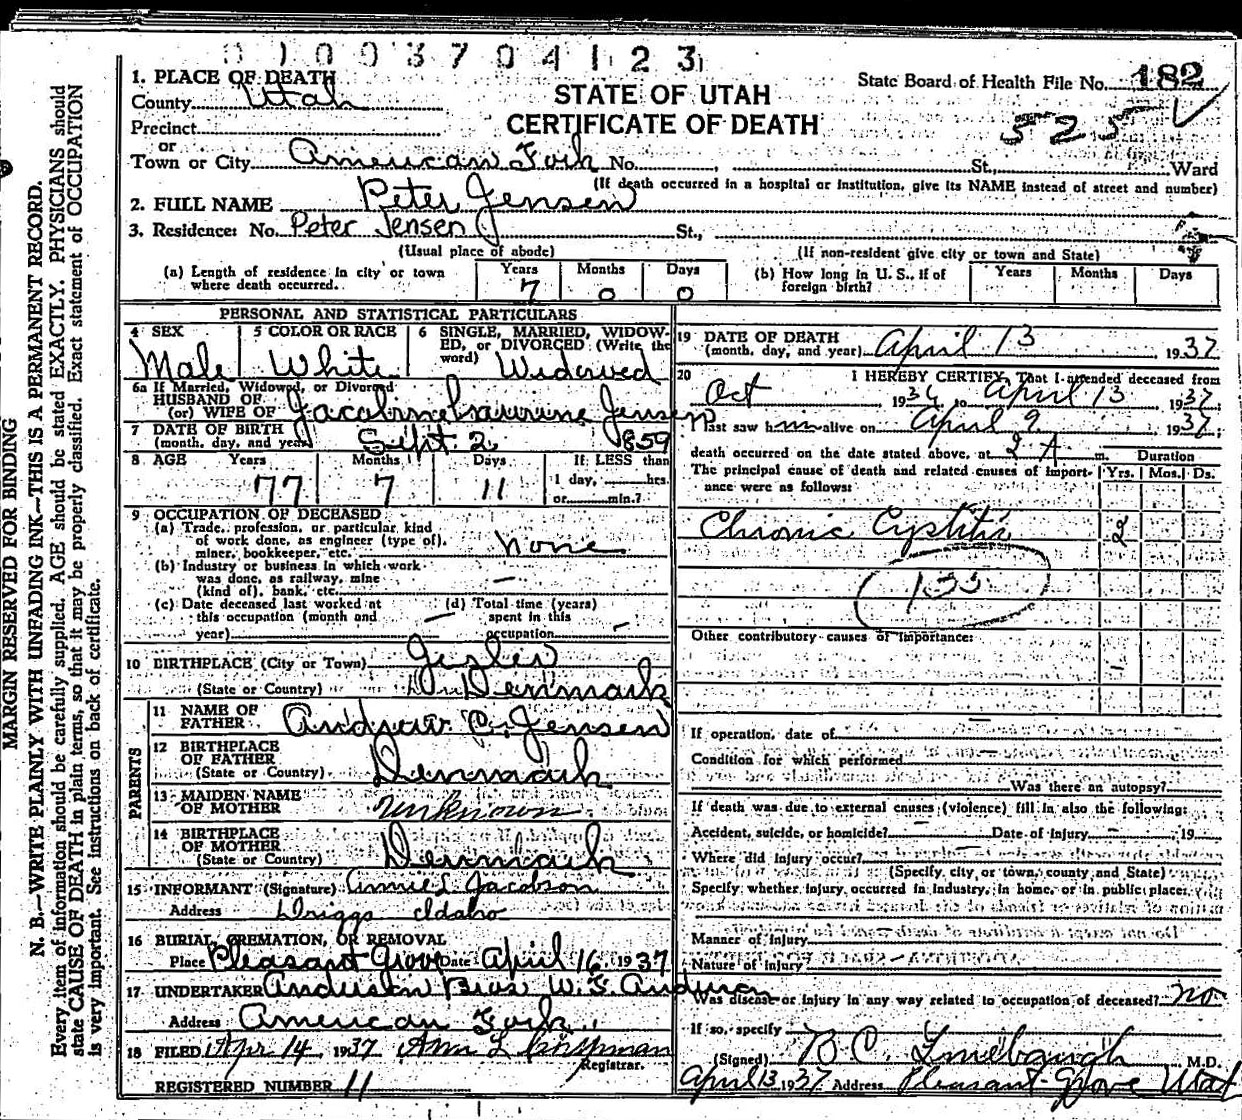 0 1 0 0 3 7 0 4 1 2 3
1. PLACE OF DEATH
County Utah
State Board of Health File No. 182
STATE OF UTAH
525
Precinct
CERTIFICATE OF DEATH
or
Town or City American Fork No. , St., Ward
(If death occurred in a hospital or institution, give its NAME instead of street and number)
2. FULL NAME Peter Jensen
3. Residence: No. Peter Jensen St.,
(Usual place of abode) (If non-resident give city or town and State)
(a) Length of residence in city or town where death occurred. Years 7 Months 0 Days 0
(b) How long in U. S., if of foreign birth? Years Months Days
PERSONAL AND STATISTICAL PARTICULARS
4 SEX Male
5 COLOR OR RACE White
6 SINGLE, MARRIED, WIDOWED, or DIVORCED (Write the word) Widowed
6a If Married, Widowed, or Divorced
HUSBAND OF
(or) WIFE OF Jensen
7 DATE OF BIRTH
(month, day, and year) Sept. 2 1859
8 AGE Years 77 Months 7 Days 11 If LESS than
1 day, hrs.
or min.?
9 OCCUPATION OF DECEASED
(a) Trade, profession, or particular kind
of work done, as engineer (type of),
miner, bookkeeper, etc. none
(b) Industry or business in which work
was done, as railway, mine
(kind of), bank, etc. —
(c) Date deceased last worked at
this occupation (month and
year) —
(d) Total time (years)
spent in this
occupation —
10 BIRTHPLACE (City or Town)
(State or Country) Denmark
PARENTS
11 NAME OF
FATHER Andrew C. Jensen
12 BIRTHPLACE
OF FATHER
(State or Country) Denmark
13 MAIDEN NAME
OF MOTHER unknown
14 BIRTHPLACE
OF MOTHER
(State or Country) Denmark
15 INFORMANT (Signature) Jacobson
Address Driggs Idaho
16 BURIAL, CREMATION, OR REMOVAL
Place Pleasant Grove Date April 16, 1937
17 UNDERTAKER Anderson Bros W. E. Anderson
Address American Fork,
18 FILED Apr 14, 1937 Ann L Chipman
Registrar.
REGISTERED NUMBER 11
19 DATE OF DEATH
(month, day, and year) April 13 1937
20 I HEREBY CERTIFY, That I attended deceased from
Oct 1936 to April 13 1937
I last saw him alive on April 9 1937;
death occurred on the date stated above, at 2 A m. Duration
The principal cause of death and related causes of importance were as follows: Yrs. Mos. Ds.
Chronic Cystitis 2
Other contributory causes of importance:
If operation, date of —
Condition for which performed —
Was there an autopsy?
If death was due to external causes (violence) fill in also the following:
Accident, suicide, or homicide? — Date of injury — , 19
Where did injury occur? —
(Specify city, or town, county, and State)
Specify whether injury occurred in industry, in home, or in public place.
Manner of injury
Nature of injury
Was disease or injury in any way related to occupation of deceased? no
If so, specify
(Signed) B C. Linebaugh M.D.
April 13 1937 Address Pleasant Grove Utah
MARGIN RESERVED FOR BINDING
N. B.—WRITE PLAINLY WITH UNFADING INK—THIS IS A PERMANENT RECORD.
Every item of information should be carefully supplied. AGE should be stated EXACTLY. PHYSICIANS should
state CAUSE OF DEATH in plain terms, so that it may be properly classified. Exact statement of OCCUPATION
is very important. See instructions on back of certificate.